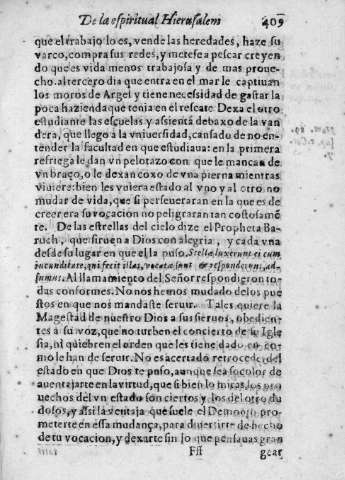 De la espiritual Hierusalem 409
que el trabajo lo es, vende las heredades, haze su
varco, compra sus redes, y metese a pescar creyen
do que es vida menos trabajosa y de mas proue-
cho. al tercero dia que entra en el mar le captiuan
los moros de Argel y tiene necesidad de gastar la
poca hazienda que tenia en el rescate. Dexa el otro
estudiante las escuelas y assienta debaxo de la van
dera, que llegò a la vniuersidad, cansado de no en-
tender la facultad en que estudiaua: en la primera
refriega le dan vn pelotazo con que le manca de
vn braço, o le dexan coxo de vna pierna mientras
viuiere: bien les vuiera estado al vno y al otro no
mudar de vida, que si perseueraran en la que es de
creer era su vocacion no peligraran tan costosamẽ
te. De las estrellas del cielo dize el Propheta Ba-
ruch, que siruen a Dios con alegria, y cada vna
desde su lugar en que el la puso. Stellæ luxerunt ei cum
iucunditate, qui fecit illas, vocatæ sunt & responderunt, ad-
sumus. Al llamamiento del Señor respondieron to-
das conformes. No nos hemos mudado de los pue
stos en que nos mandaste seruir. Tales quiere la
Magestad de nuestro Dios a sus sieruos, obedien-
tes a su voz, que no turben el concierto de su Igle
sia, ni quiebren el orden que les tiene dado en co-
mo le han de seruir. No es acertado retroceder del
estado en que Dios te puso, aunque sea so color de
auentajarte en la virtud, que si bien lo miras, los pro
uechos del vn estado son ciertos y los del otro du
dosos, y assi la ventaja que suele el Demonio pro-
meterte en essa mudança, para diuertirte de hecho
de tu vocacion, y dexarte sin lo que pensauas gran
Fff gear